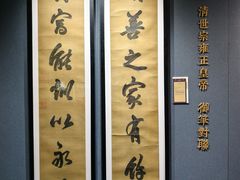 清世宗雍正皇帝 御筆對聯
善之家有餘
富能訓以永